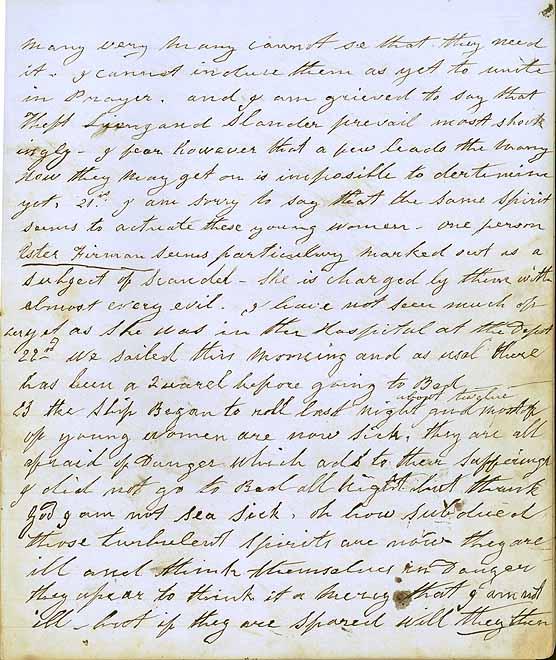 many very many cannot se that they need
it. I cannot induce them as yet to unite
in Prayer. and I am grieved to say that
Theft Lieng and Slander prevail most shock
ingly - I fear however that a few leads the many
how they may get on is imposible to dertemine
yet. 21st I am sorry to say that the same spirit
seems to actuate these young women - one person
Ester Firman seems particulury marked out as a
subject of scandel - she is charged by them with
almost every evil. I have not seen much of
her yet as she was in the Hospital at the Depot
22nd we sailed this morning and as usal there
has been a Quarel before going to Bed
about twelve
23 the ship Began to roll last night and most of
of young women are now sick. they are all
afraid of Danger which ads to their sufferings
I did not go to Bed all night but thank
God I am not sea sick. oh how subdued
those turbulent spirits are now they are
ill and think themselves in Danger
they apear to think it a mercy that I am not
ill - but if they are spared will they then